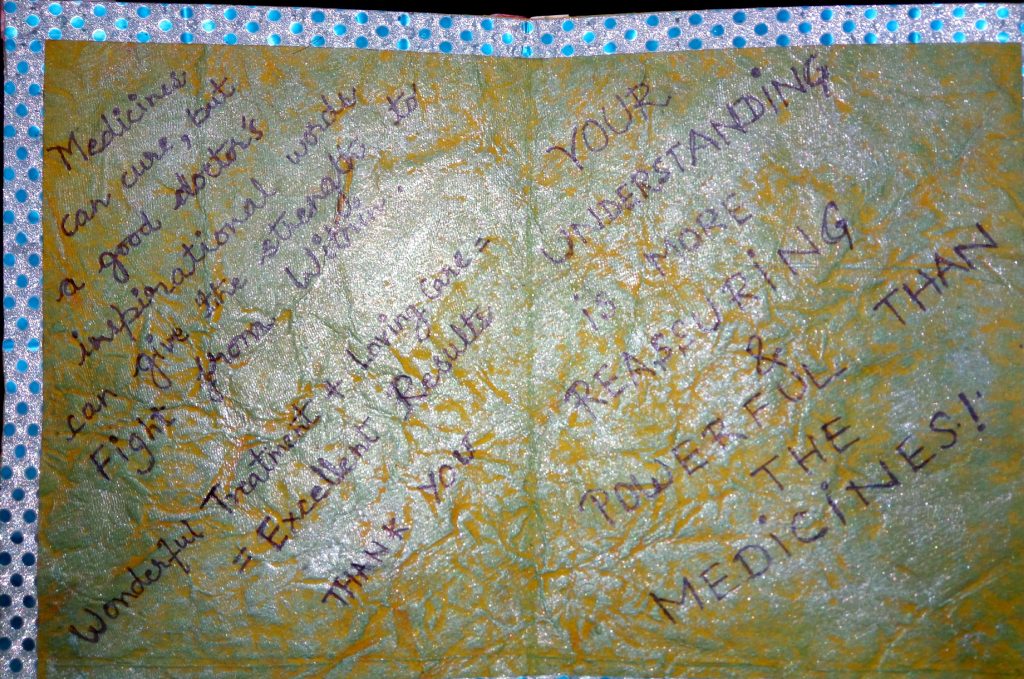 Medicines
can cure, but
a good doctor's
inspirational words
can give the strength to
Fight from Within.
Wonderful Treatment + Loving Care =
= Excellent Results
THANK YOU
YOUR
UNDERSTANDING
is MORE
REASSURING
&
POWERFUL THAN
THE
MEDICINES!